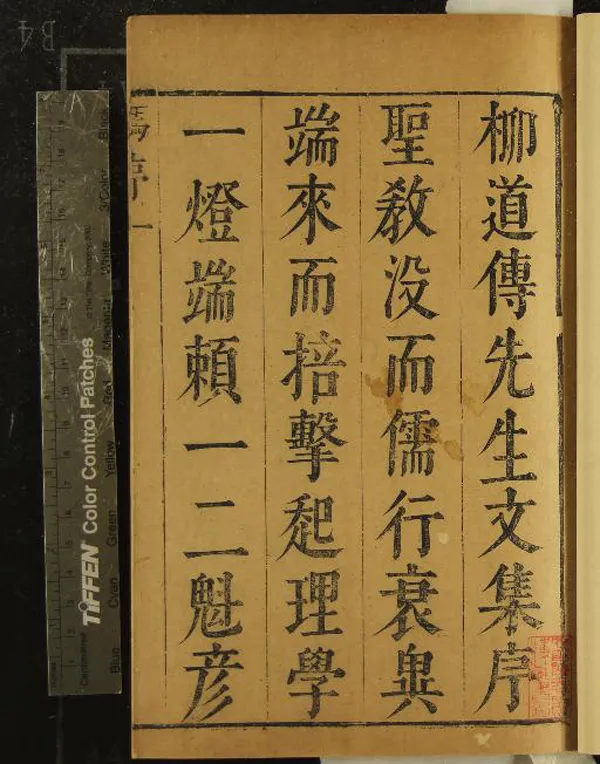 柳道傳先生文集序
聖教没而儒行衰異
端來而掊擊起理學
一燈端賴一二魁彦
馮序 一
TIFFEN Color Control Patches
Blue
Cyan
Green
Yellow
Red
Magenta
White
3/Color
Black
Centimetres
B4